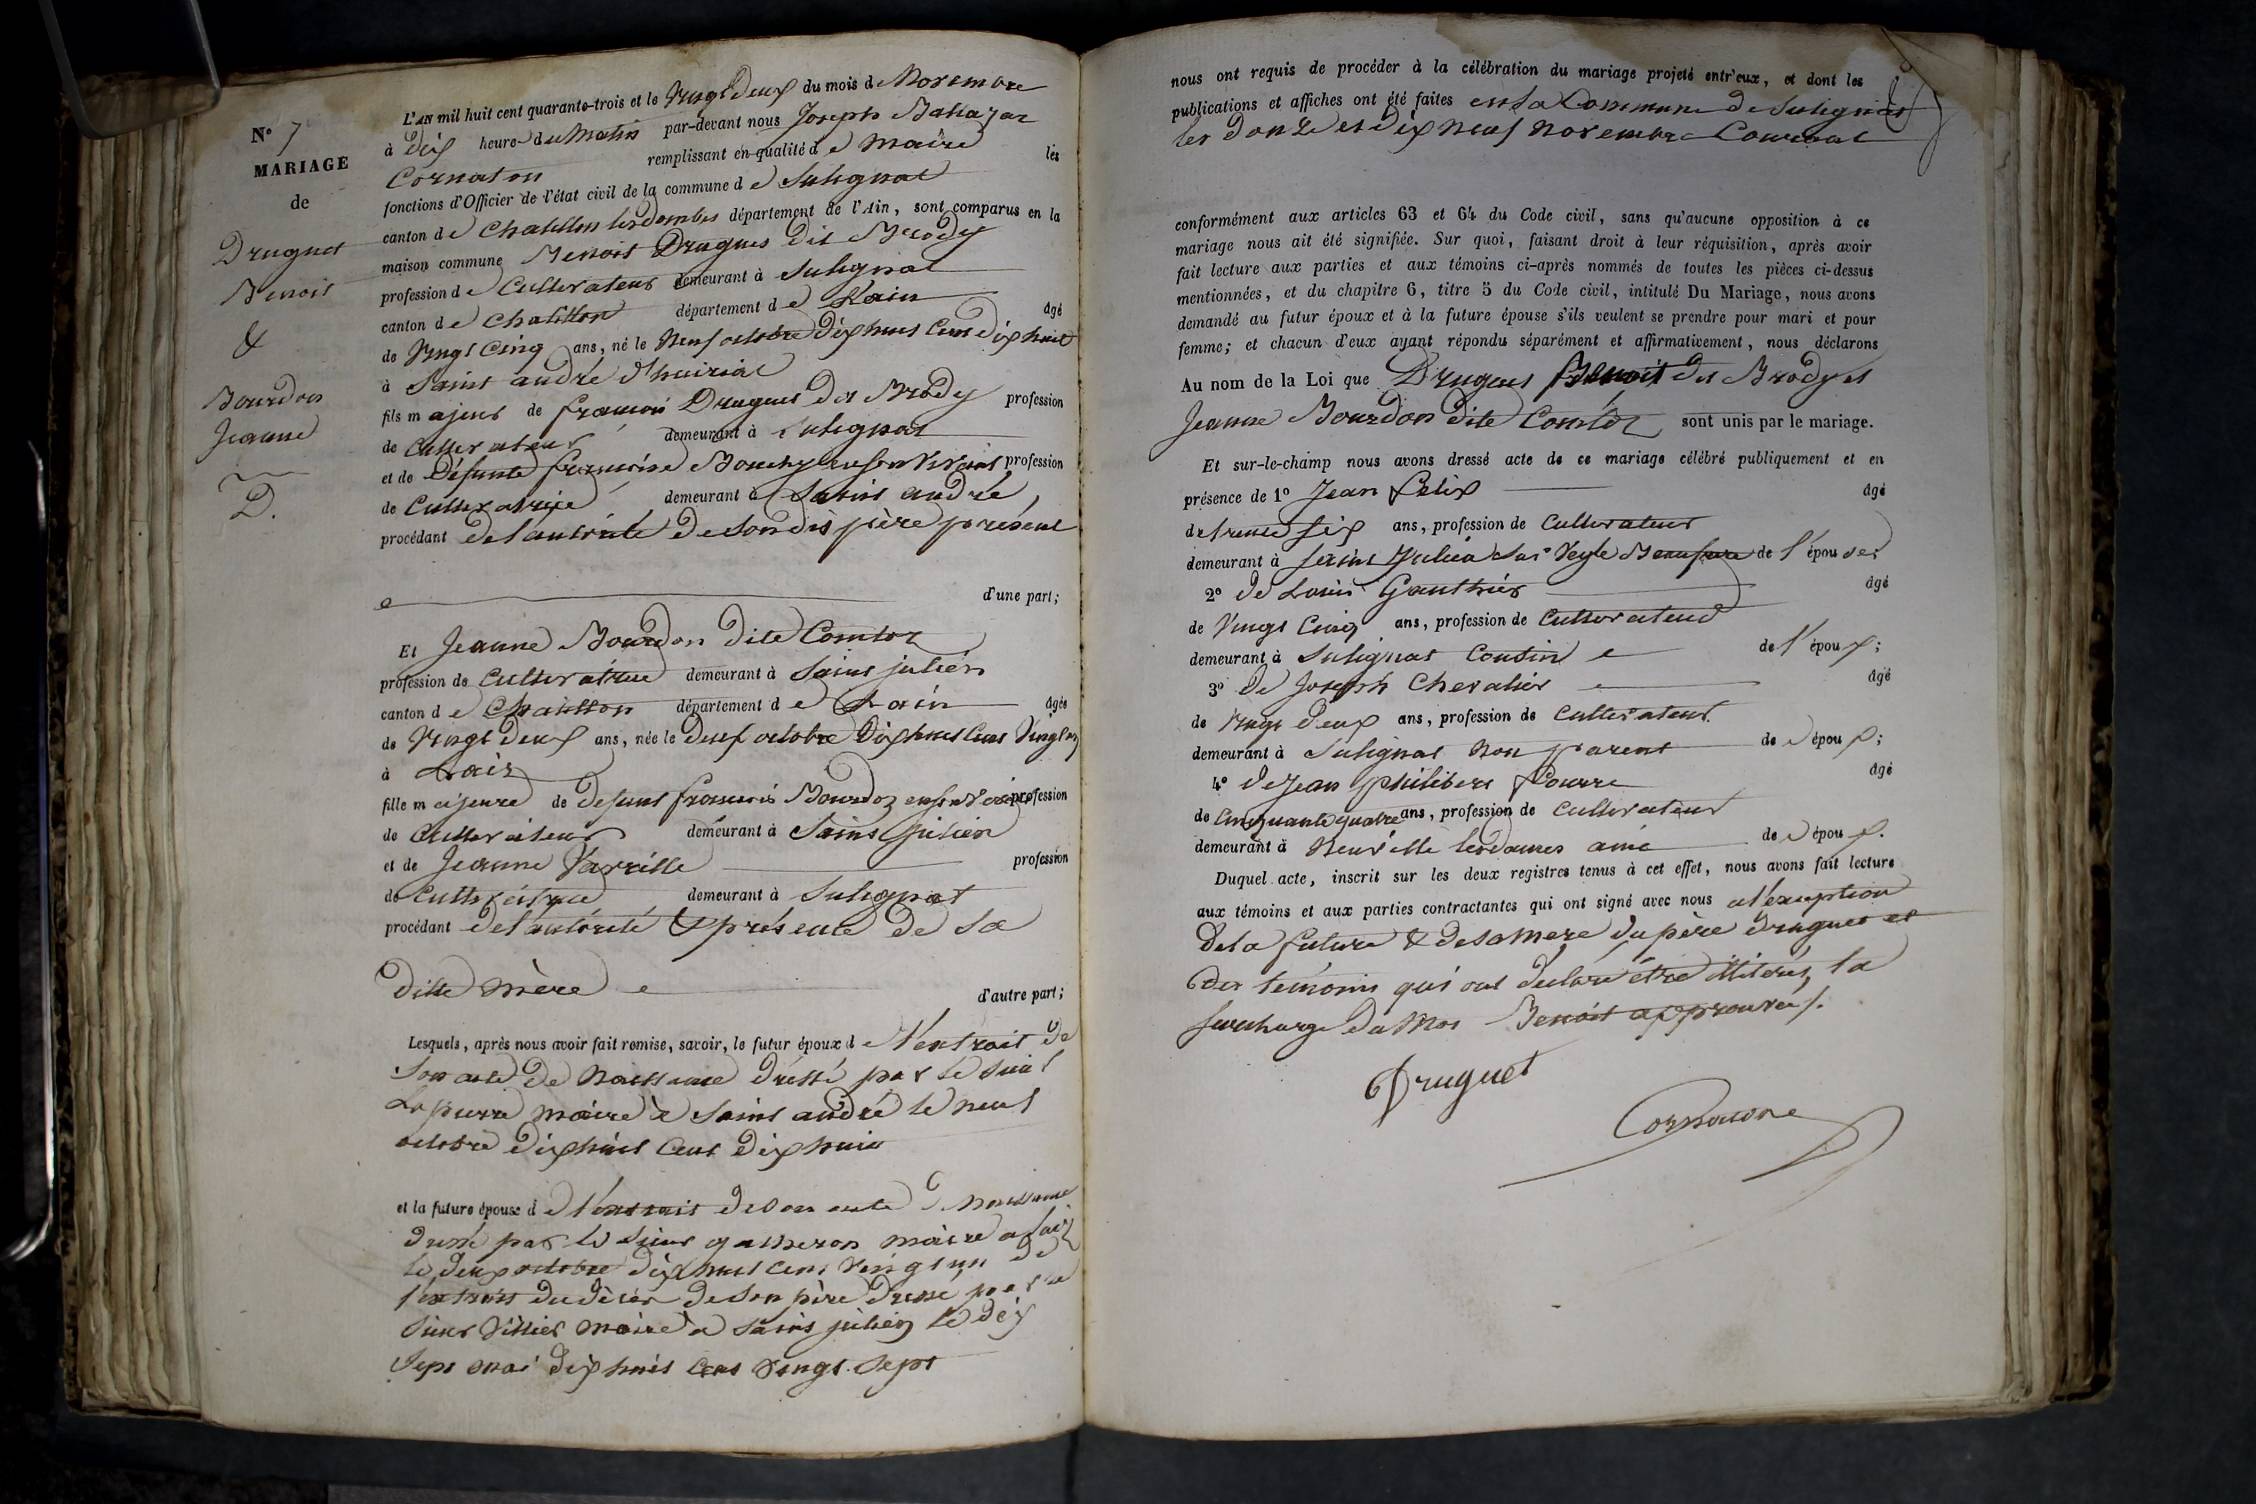 N° 7
MARIAGE
de
Druguet
Benoit
&
Bourdon
Jeanne
D.
L'AN mil huit cent quarante-trois et le Vingt deux du mois de Novembre
à Dix heure du Matin par-devant nous Joseph Baltazar
Cornaton remplissant en qualité de maire les
fonctions d'Officier de l'état civil de la commune de Sulignat
canton de Chatillon les dombes département de l'Ain, sont comparus en la
maison commune Benoit Drugues dit Brody
profession de Cultivateur demeurant à Sulignat
canton de Chatillon département de L'ain âgé
de Vingt Cinq ans, né le Neuf octobre Dix huit Cent Dix huit
à Saint andré d'huiriat
fils majeur de françois Drugues dit Brody profession
de Cultivateur demeurant à Sulignat
et de Défunte françoise Bouchy en son Vivant profession
de Cultivatrice demeurant à Saint andré,
procédant de l'autorité de son dit père présent
d'une part;
Et Jeanne Bourdon dite Comtoz
profession de Cultivatrice demeurant à Saint julien
canton de Chatillon département de L'ain âgée
de Vingt deux ans, née le deux octobre Dix huit Cent Vingt un
à Laiz
fille majeure de Defunt françois Bourdon en son Vivant profession
de Cultivateur demeurant à Saint Julien
et de Jeanne Varville profession
de Cultivatrice demeurant à Sulignat
procédant de l'autorité & présence de sa
ditte mère d'autre part;
Lesquels, après nous avoir fait remise, savoir, le futur époux de l'extrait de
son acte de Naissance dressé par le sieur
Lapierre maire à Saint andré le neuf
octobre Dix huit Cent Dix huit
et la future épouse de l'extrait de son acte de Naissance
dressé par le sieur maire à Laiz
le deux octobre dix huit cent vingt un de
l'extrait du décès de son père dressé par le
sieur Villier maire à Saint julien le dix
sept mai dix huit cent vingt-sept
nous ont requis de procéder à la célébration du mariage projeté entr'eux, et dont les
publications et affiches ont été faites en la Commune de Sulignat
les Douze et Dix Neuf Novembre Courant
conformément aux articles 63 et 64 du Code civil, sans qu'aucune opposition à ce
mariage nous ait été signifiée. Sur quoi, faisant droit à leur réquisition, après avoir
fait lecture aux parties et aux témoins ci-après nommés de toutes les pièces ci-dessus
mentionnées, et du chapitre 6, titre 5 du Code civil, intitulé Du Mariage, nous avons
demandé au futur époux et à la future épouse s'ils veulent se prendre pour mari et pour
femme; et chacun d'eux ayant répondu séparément et affirmativement, nous déclarons
Au nom de la Loi que Drugues Benoit dit Brody et
Jeanne Bourdon dite Comtoz sont unis par le mariage.
Et sur-le-champ nous avons dressé acte de ce mariage célébré publiquement et en
présence de 1° Jean Felix âgé
de trente six ans, profession de Cultivateur
demeurant à Saint Julien sur Veyle Beaufrere de l'épouse;
2° de Louis Gauthier âgé
de Vingt Cinq ans, profession de Cultivateur
demeurant à Sulignat Cousin de l'époux;
3° de Joseph Chevalier âgé
de Vingt deux ans, profession de Cultivateur
demeurant à Sulignat Non parent de époux;
4° de Jean philibert âgé
de Cinquante quatre ans, profession de Cultivateur
demeurant à Neuville les dames ami de époux.
Duquel acte, inscrit sur les deux registres tenus à cet effet, nous avons fait lecture
aux témoins et aux parties contractantes qui ont signé avec nous a l'exception
de la future & de sa mere du père drugues et
des temoins qui ont déclaré être illiterés, la
surcharge du Mot Benoit approuvé/.
Druguet
Cornatone